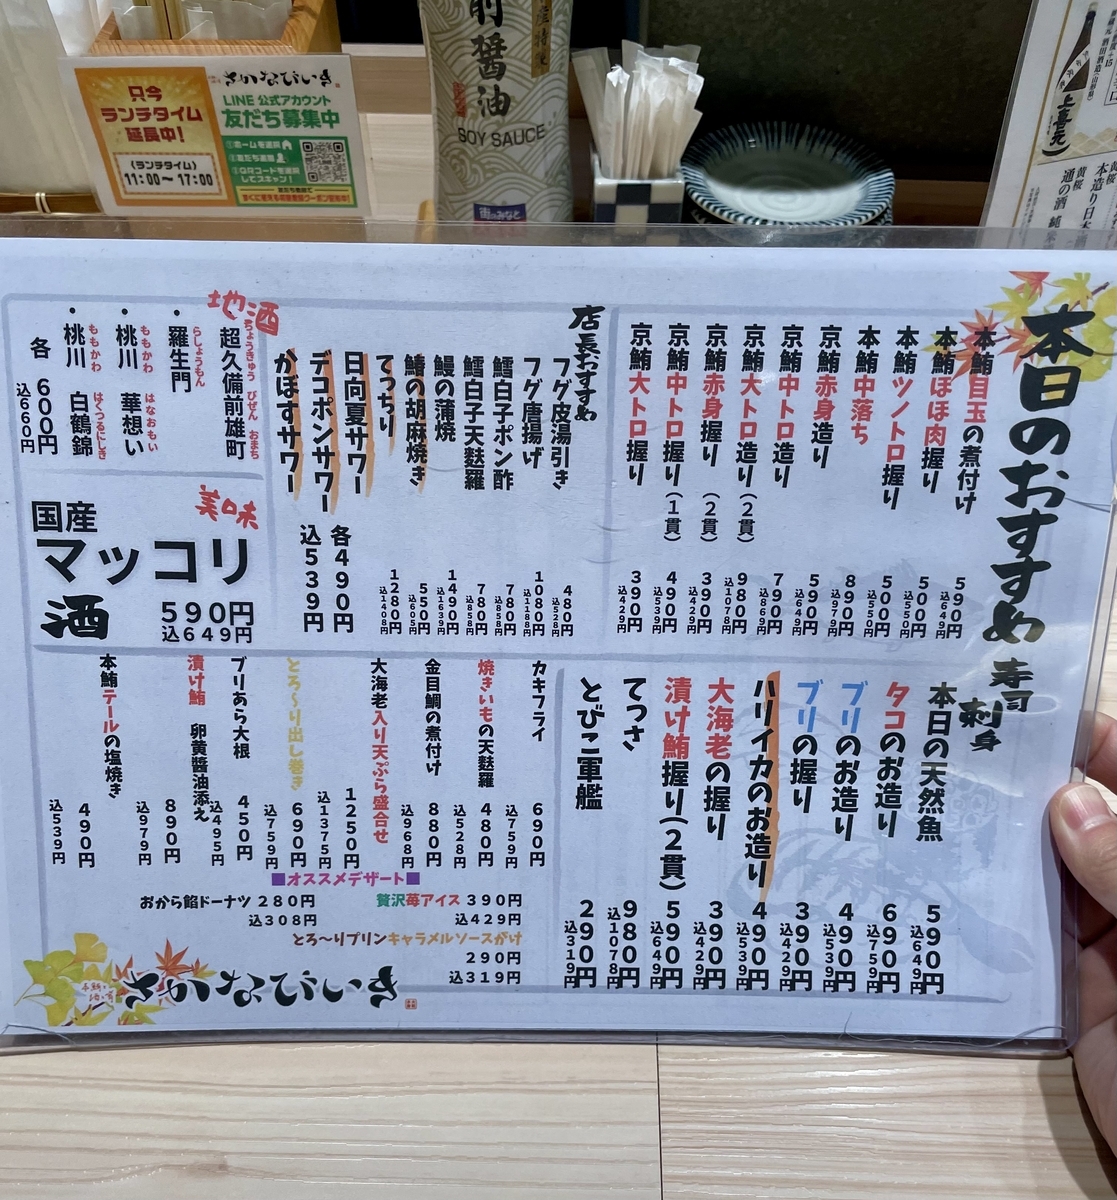 前醤油
SOY SAUCE
街のみなと
只今
ランチタイム
延長中!
(ランチタイム)
11:00〜17:00
さかなびいき
LINE 公式アカウント
友だち募集中
①ホームを選択
②友だち追加
③QRコードを選択
してスキャン!
上喜元
黄桜
本造り
黄桜
通の酒
本日のおすすめ 寿司 刺身
本鮪目玉の煮付け 590円 込649円
本鮪ほほ肉握り 500円 込550円
本鮪ツノトロ握り 500円 込550円
本鮪中落ち 890円 込979円
京鮪赤身造り 590円 込649円
京鮪中トロ造り 790円 込869円
京鮪大トロ造り(2貫) 980円 込1078円
京鮪赤身握り(2貫) 390円 込429円
京鮪中トロ握り(1貫) 490円 込539円
京鮪大トロ握り 390円 込429円
店長おすすめ
フグ皮湯引き 480円 込528円
フグ唐揚げ 1080円 込1188円
鱈白子ポン酢 780円 込858円
鱈白子天麩羅 780円 込858円
鰻の蒲焼 1490円 込1639円
鰆の胡麻焼き 550円 込605円
てっちり 1280円 込1408円
日向夏サワー
デコポンサワー
かぼすサワー
各490円
込539円
地酒
超久備前雄町 ちょうきゅう びぜん おまち
・羅生門 らしょうもん
・桃川 華想い ももかわ はなおもい
・桃川 白鶴錦 ももかわ はくつるにしき
各 600円
込660円
美味
国産
マッコリ
酒
590円
込649円
本日の天然魚 590円 込649円
タコのお造り 690円 込759円
ブリのお造り 490円 込539円
ブリの握り 390円 込429円
ハリイカのお造り 490円 込539円
大海老の握り 390円 込429円
漬け鮪握り(2貫) 590円 込649円
てっさ 980円 込1078円
とびこ軍艦 290円 込319円
カキフライ 690円 込759円
焼きいもの天麩羅 480円 込528円
金目鯛の煮付け 880円 込968円
大海老入り天ぷら盛合せ 1250円 込1375円
とろ〜り出し巻き 690円 込759円
ブリあら大根 450円 込495円
漬け鮪 卵黄醤油添え 890円 込979円
本鮪テールの塩焼き 490円 込539円
■オススメデザート■
贅沢苺アイス 390円
込429円
おから餡ドーナツ 280円
込308円
とろ〜りプリンキャラメルソースがけ
290円
込319円
さかなびいき